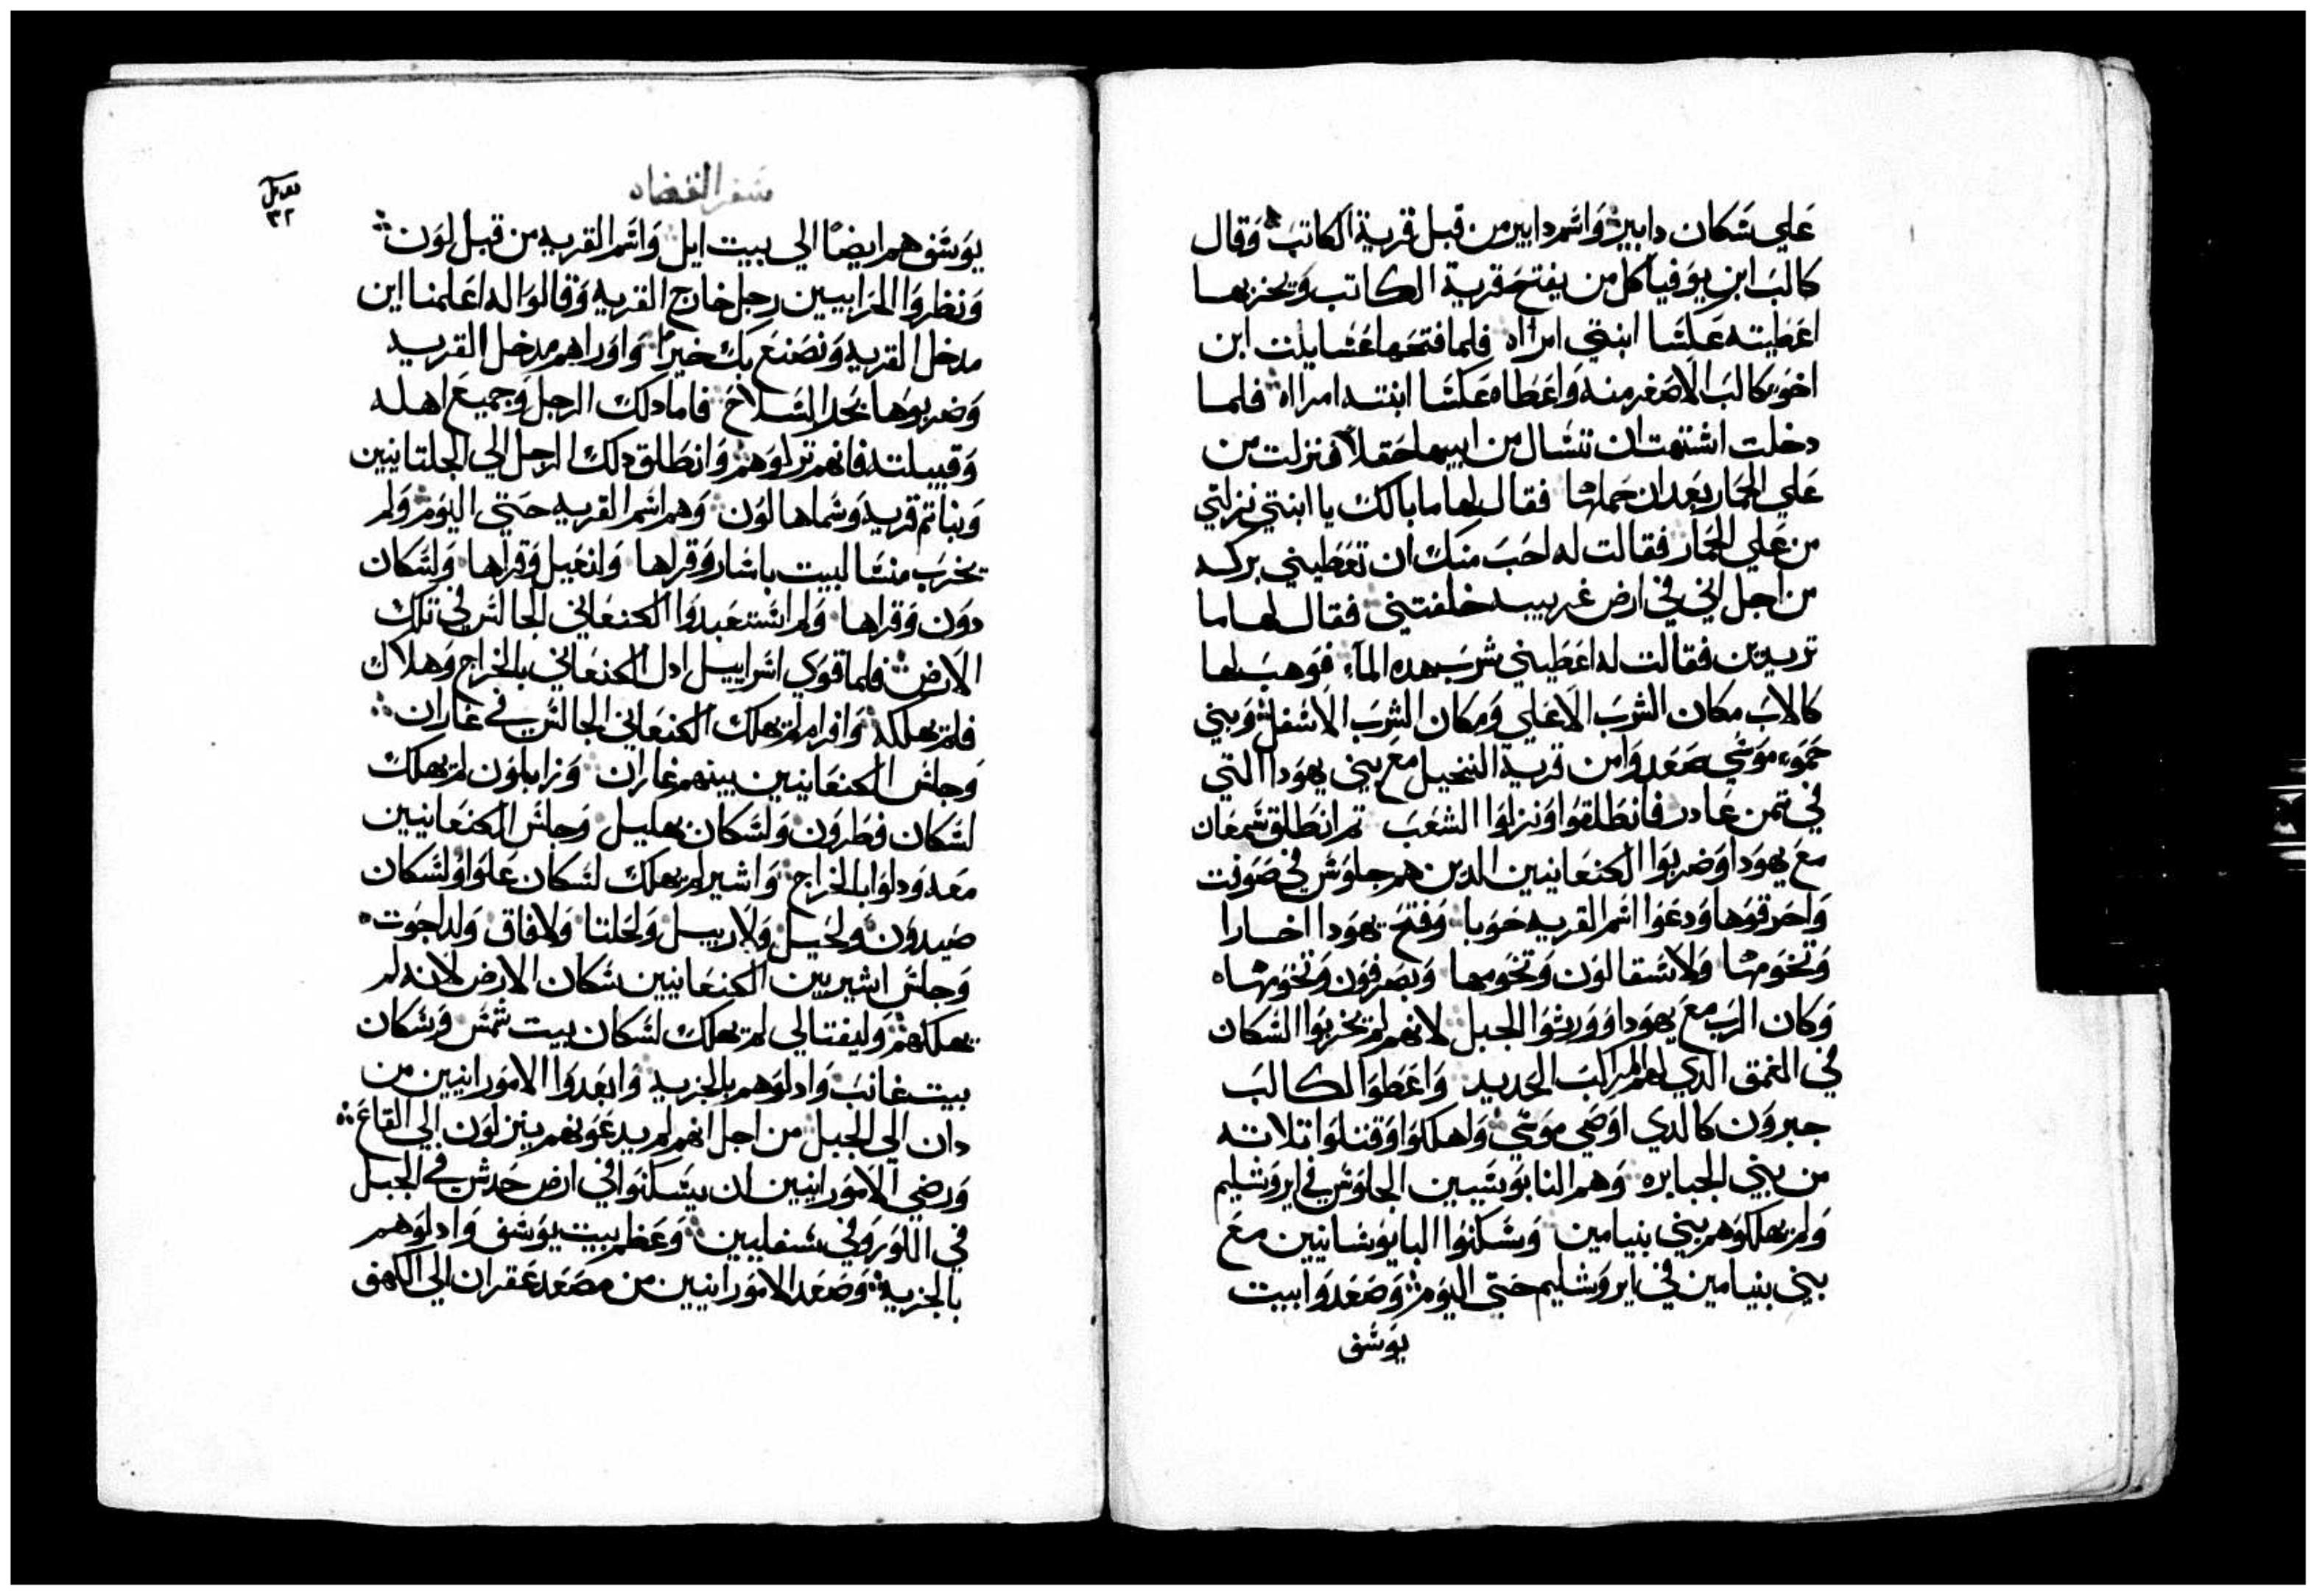 علي سكان دابير واسم دابير من قبل قرية الكاتب وقال
كالب ابن يوفيا كل من يفتح قرية الكاتب ويخربها
اعطيته عكسا ابنتي امراه فلما فتحها غثنايلت ابن
اخو كالب الاصغر منه واعطاه عكسا ابنته امراه فلما
دخلت اشتهت ان تسال من ابيها حقلا فنزلت من
علي الحمار بعد ان حملها فقال لها ما بالك يا ابنتي نزلتي
من علي الحمار فقالت له احب منك ان تعطيني بركه
من اجل اني في ارض غريبه خلفتني فقال لها ما
تريدين فقالت له اعطيني شرب هده الماء فوهب لها
كالاب مكان الشرب الاعلي ومكان الشرب الاسفل وبني
حموء موسي صعدوا من قرية النخيل مع بني يهودا التي
في تمن عادر فانطلقوا ونزلوا الشعب تم انطلق سمعان
مع يهودا وضربوا الكنعانيين الدين هم جلوس في صونت
واحرقوها ودعوا اسم القريه حوبا وفتح يهودا اخسارا
وتخومها ولاسقالون وتخومها وبصفرون وتخومهاه
وكان الرب مع يهودا وورثوا الجبل لانهم لم يخربوا السكان
في الغمق الدي لهم المراكب الحديد واعطوا لكالب
جبرون كالدي اوصي موسي واهلكوا وقتلوا تلاته
من بني الجبابره وهم النابوسيين الجلوس في ايروشليم
ولم يهلكوهم بني بنيامين وسكنوا البابوسانيين مع
بني بنيامين في ايروشليم حتي اليوم وصعدوا ابيت
يوسف
سفر القضاه
٣٢
يوسف هم ايضا الي بيت ايل واسم القريه من قبل لون
ونظروا الحرابيين رجل خارج القريه وقالوا له اعلمنا اين
مدخل القريه ونصنع بك خيرا واوراهم مدخل القريه
وضربوها بحد السلاح فاما دلك الرجل وجميع اهله
وقبيلته فانهم تركوهم وانطلق دلك الرجل الي الجلتانيين
وبنا تم قريه وسماها لون وهم اسم القريه حتي اليوم ولم
يخرب منسا لبيت باسار وقراها ولنعيل وقراها ولسكان
دون وقراها ولم استعبدوا الكنعاني الجالس في تلك
الارض فلما قوي اسراييل ادل الكنعاني بالخراج وهلاك
فلم يهلكه وافرام لم يهلك الكنعاني الجالس في غاران
وجلس الكنعانيين بينهم غاران وزابلون لم يهلك
لسكان فطرون ولسكان يهليل وجلس الكنعانيين
معه ودلوا بالخراج واشير لم يهلك لسكان علوا ولسكان
صيدون ولحيل ولاربيل ولحلتا ولافاق ولداجوت
وجلس اشيريين الكنعانيين سكان الارض لانه لم
يهلكهم وليفتالي لم يهلك لسكان بيت شمس وسكان
بيت غانب وادلوهم بالجزيه وابعدوا الامورانيين من
دان الي الجبل من اجل انهم لم يدعونهم ينزلون الي القاع
ورضي الامورانيين ان يسكنوا في ارض حدش في الجبل
في اللور وفي سفليبين وعظم بيت يوسف وادلوهم
بالجزيه وصعد الامورانيين من مصعد عقران الي الكهف